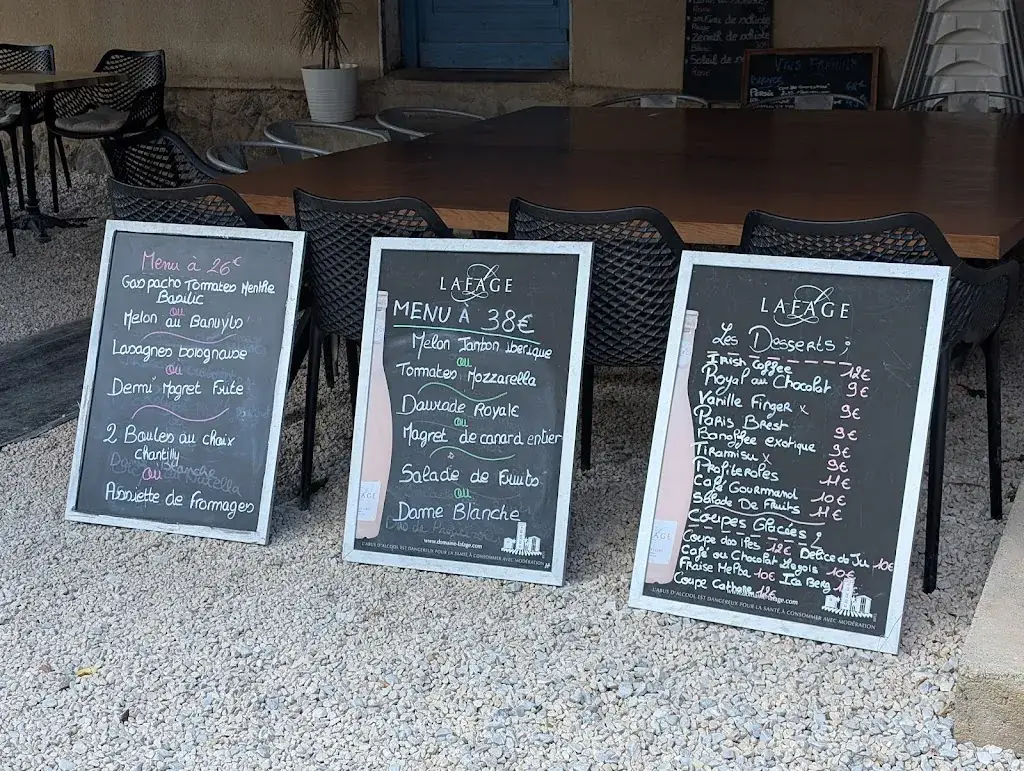 Menu à 26€
Gaspacho Tomates Menthe
Basilic
ou
Melon au Banyuls
Lasagnes bolognaise
ou
Demi Magret Frite
2 Boules au choix
Chantilly
ou
Assiette de Fromages
LAFAGE
MENU À 38€
Melon Jambon iberique
ou
Tomates Mozzarella
Daurade Royale
ou
Magret de canard entier
Salade de Fruits
ou
Dame Blanche
www.domaine-lafage.com
L'ABUS D'ALCOOL EST DANGEREUX POUR LA SANTÉ À CONSOMMER AVEC MODÉRATION
LAFAGE
Les Desserts ;
Irish Coffee 12€
Royal au Chocolat 9€
Vanille Finger x 9€
Paris Brest 9€
Banoffee exotique 9€
Tiramisu x 9€
Profiteroles 11€
Café Gourmand 10€
Salade De Fruits 11€
Coupes Glacées ;
Coupe des Ifes 12€ Délice du Ju 10€
Café ou Chocolat Liegois 10€
Fraise Melba 10€ Ice Berg
Coupe Cathare 12€
L'ABUS D'ALCOOL EST DANGEREUX POUR LA SANTÉ À CONSOMMER AVEC MODÉRATION